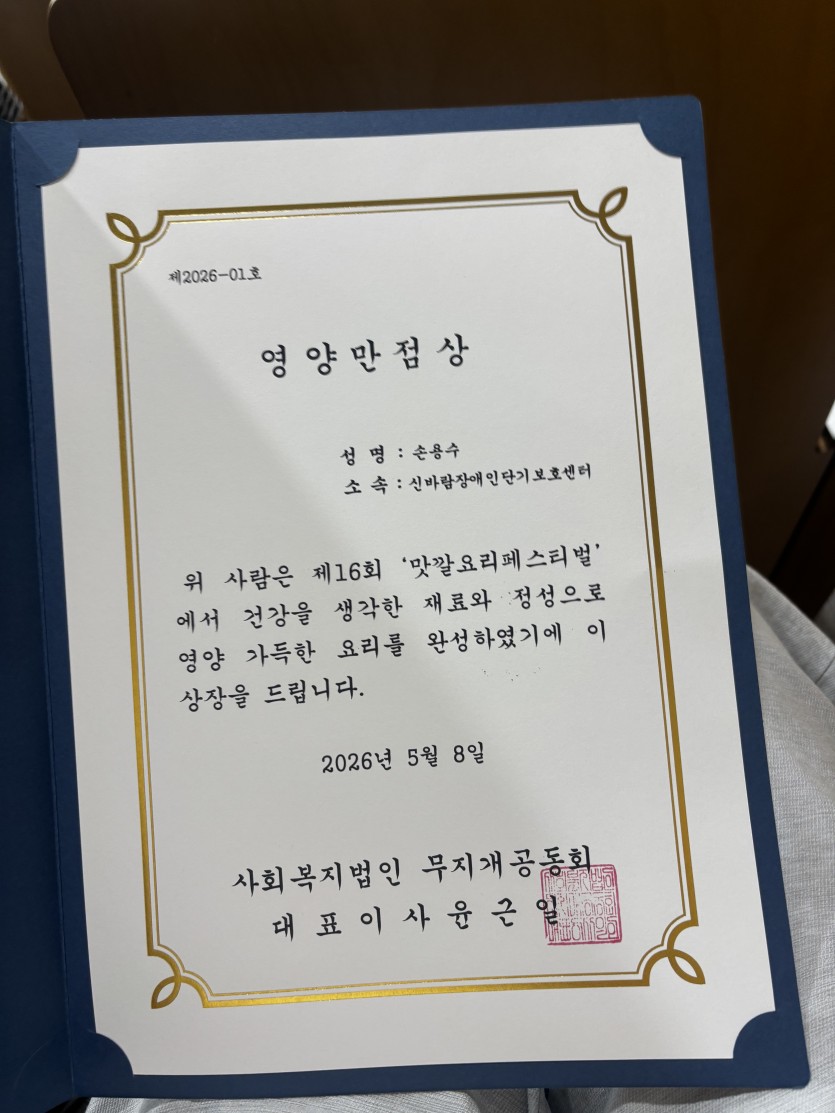 제2026-01호
영양만점상
성 명 : 손용수
소 속 : 신바람장애인단기보호센터
위 사람은 제16회 '맛깔요리페스티벌'
에서 건강을 생각한 재료와 정성으로
영양 가득한 요리를 완성하였기에 이
상장을 드립니다.
2026년 5월 8일
사회복지법인 무지개공동회
대표이사윤근일